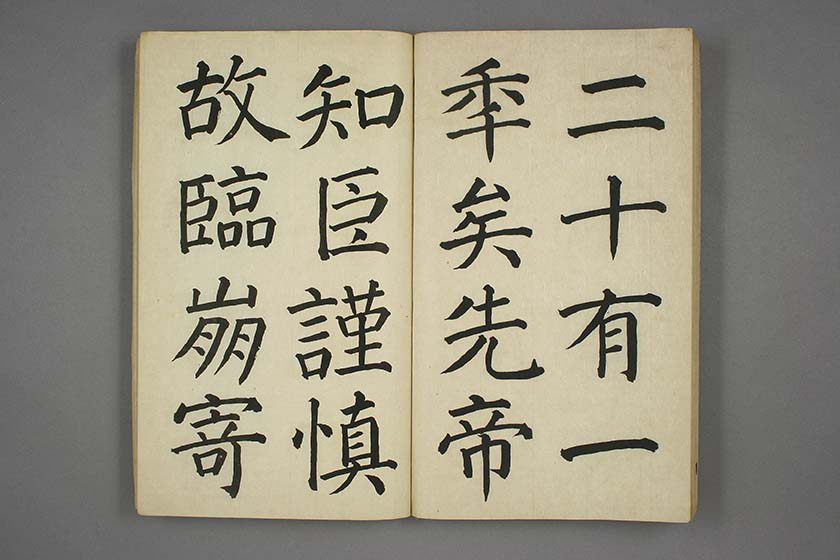 二十有一
年矣先帝
知臣謹慎
故臨崩寄